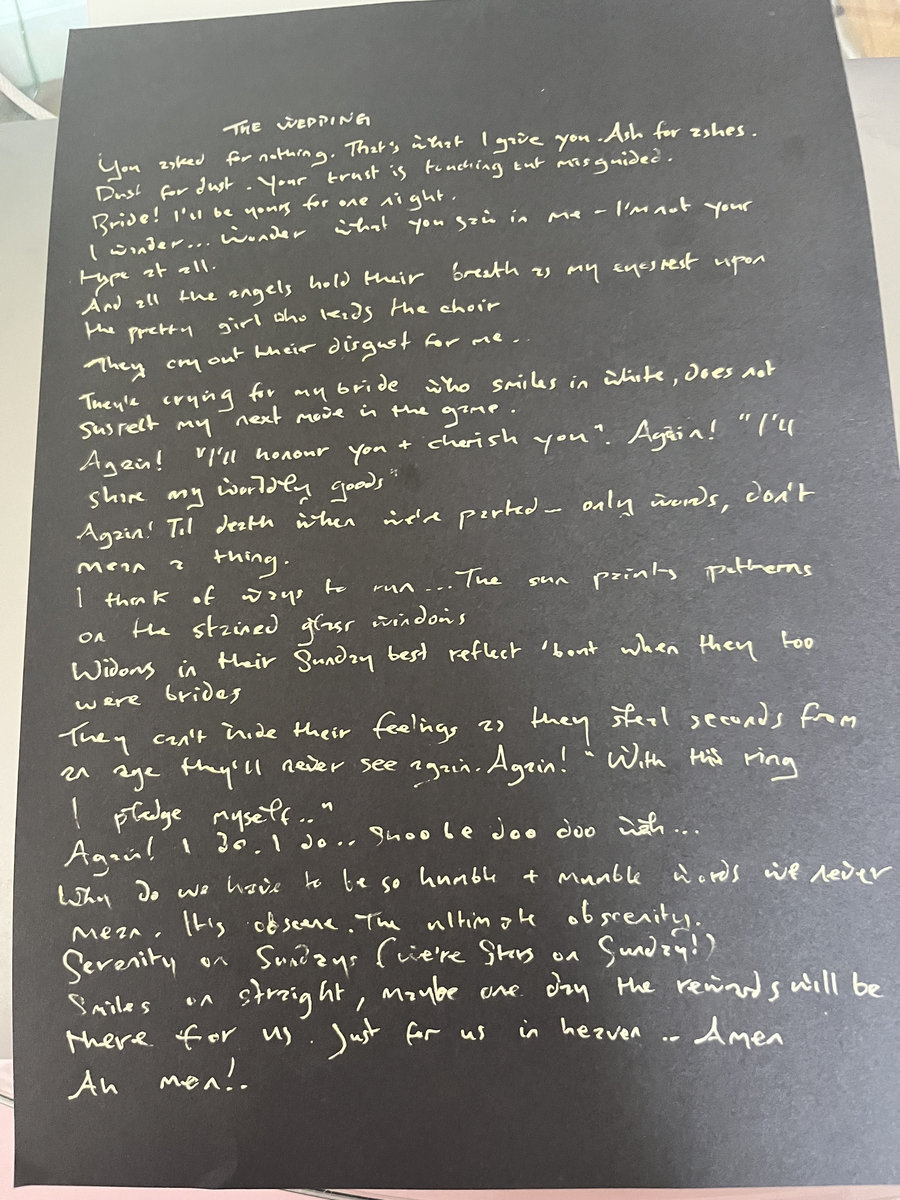 THE WEDDING
You asked for nothing. That's what I give you. Ash for ashes.
Dust for dust. Your trust is touching but misguided.
Bride! I'll be yours for one night.
I winder... wonder what you saw in me - I'm not your
type at all.
And all the angels hold their breath as my eyes rest upon
the pretty girl who leads the choir
They cry out their disgust for me..
They're crying for my bride who smiles in white, does not
suspect my next move in the game.
Again! "I'll honour you + cherish you". Again! "I'll
share my worldly goods"
Again! Til death when we're parted - only words, don't
mean a thing.
I think of ways to run... The sun paints patterns
on the stained glass windows
Widows in their Sunday best reflect 'bout when they too
were brides
They can't hide their feelings as they steal seconds from
an age they'll never see again. Again! "With this ring
I pledge myself.."
Again! I do. I do.. Shoo be doo doo wah...
Why do we have to be so humble + mumble words we never
mean. It's obscene. The ultimate obscenity.
Serenity on Sundays (we're Stars on Sunday!)
Smiles on straight, maybe one day the rewards will be
there for us. Just for us in heaven .. Amen
Ah men!.